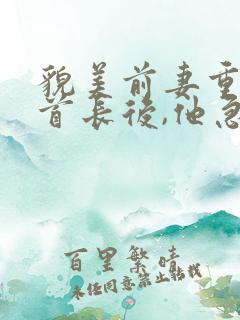 貌美前妻重
首长後,他急
百里繁晴
未经同意禁止转载